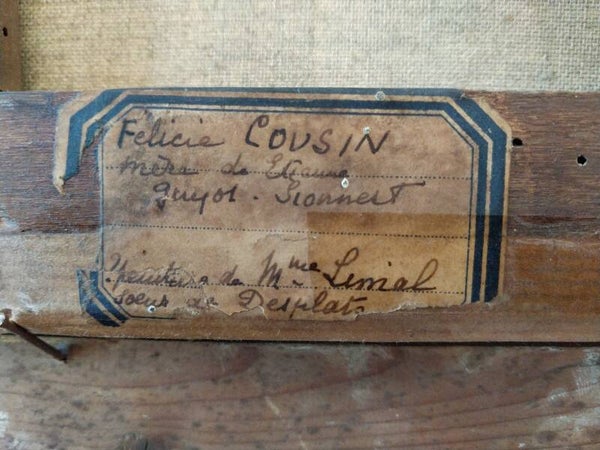 Félicie COUSIN
mère de Etienne
Guyot-Sionnest
peinture de Mme Limal
soeur de Desplats